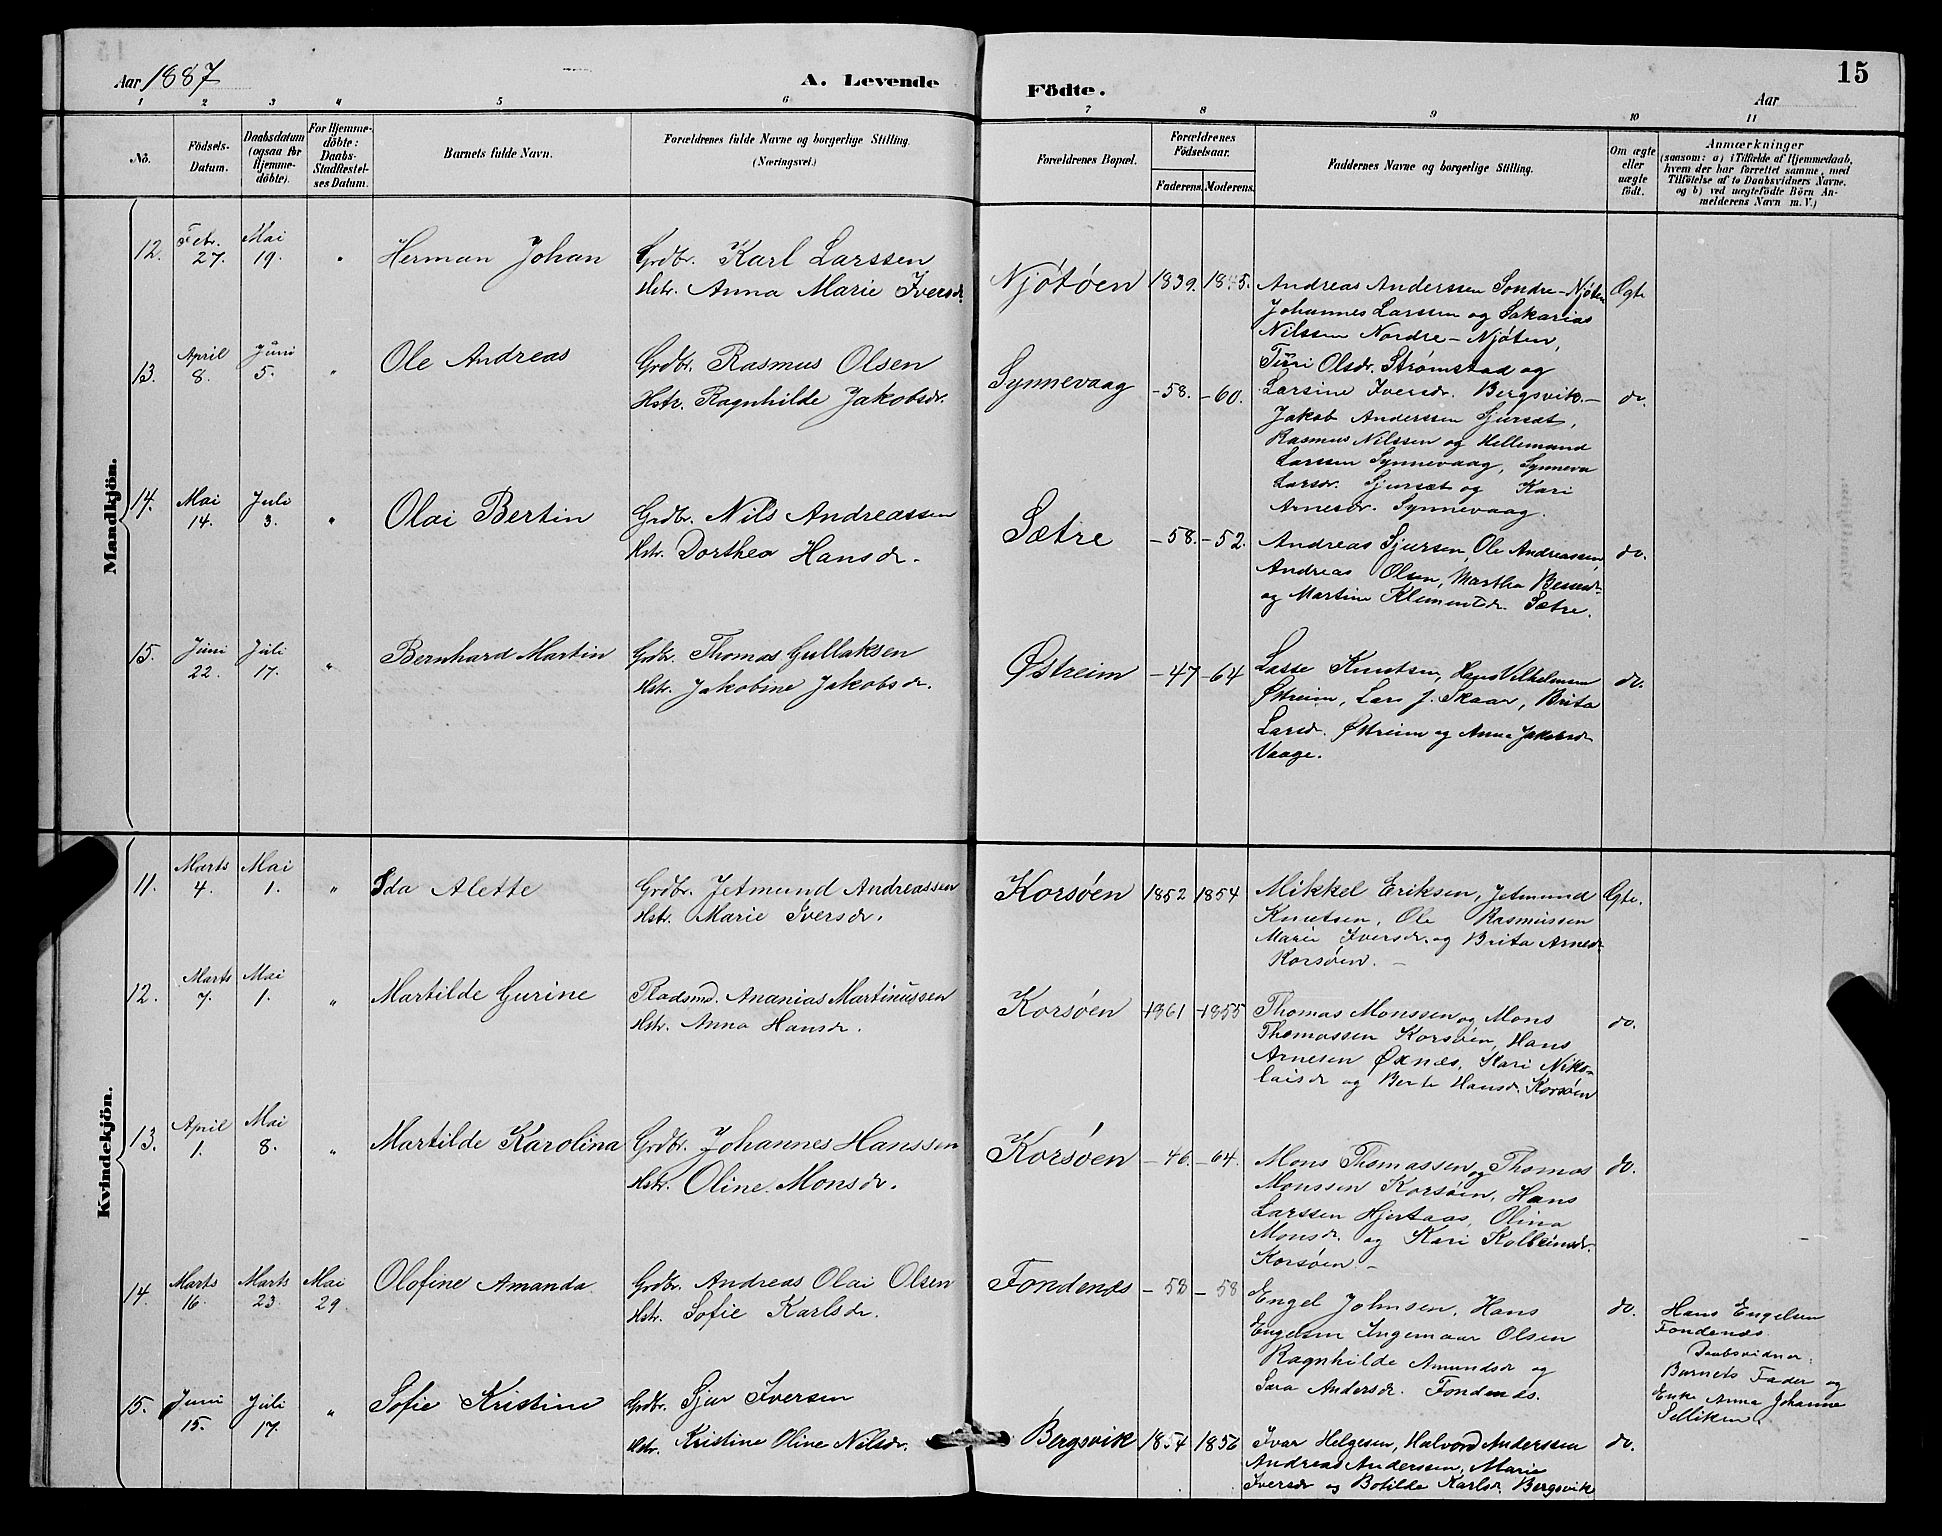 Aar 1887
A. Levende
Födte.
15
Aar
1 2 3 4 5 6 7 8 9 10 11
No.
Födsels-
Datum.
Daabsdatum
(ogsaa for
Hjemme-
döbte).
For Hjemme-
döbte:
Daabs-
Stadfæstel-
ses Datum.
Barnets fulde Navn.
Forældrenes fulde Navne og borgerlige Stilling.
(Næringsvei.)
Forældrenes Bopæl.
Forældrenes
Födselsaar.
Faderens. Moderens.
Faddernes Navne og borgerlige Stilling.
Om ægte
eller
uægte
födt.
Anmærkninger
(saasom: a) i Tilfælde af Hjemmedaab,
hvem der har forrettet samme, med
Tilföielse af to Daabsvidners Navne,
og b) ved uægtefödte Börn An-
melderens Navn m. V.)
Mandkjön.
12. Febr. 27. Mai 19. " Herman Johan
Grdbr. Karl Larssen
Hstr. Anna Marie Iversdr.
Njøtøen 1839. 1845.
Andreas Anderssen Søndre-Njøten
Johannes Larssen og Sakarias
Nilssen Nordre-Njøten,
Turi Olsdr. Strømstad og
Larsine Iversdr. Bergsvik.–
Ægte
13. April 8. Juni 5. " Ole Andreas
Grdbr. Rasmus Olsen
Hstr. Ragnhilde Jakobsdr.
Synnevaag – 58. – 60.
Jakob Anderssen Sjursæt,
Rasmus Nilssen og Hellemand
Larssen Synnevaag, Synneva
Larsdr. Sjursæt og Kari
Arnesdr. Synnevaag.
do.
14. Mai 14. Juli 3. " Olai Bertin
Grdbr. Nils Andreassen
Hstr. Dorthea Hansdr.
Sætre – 58. – 52.
Andreas Sjursen, Ole Andreassen,
Andreas Olsen, Martha
og Martine Klementsdr. Sætre.
do.
15. Juni 22. Juli 17. " Bernhard Martin
Grdbr. Thomas Gullaksen
Hstr. Jakobine Jakobsdr.
Østreim – 47 – 64
Lasse Knutsen, Hans Vilhelmsen
Østreim, Lars J. Skaar, Brita
Larsdr. Østreim og Anna Jakobsdr.
Vaage.
do.
Kvindekjön.
11. Marts 4. Mai 1. " Ida Alette
Grdbr. Jetmund Andreassen
Hstr. Marie Iversdr.
Korsøen 1852 1854
Mikkel Eriksen, Jetmund
Knutsen, Ole Rasmussen
Marie Iversdr. og Brita Arnesdr.
Korsøen. –
Ægte.
12. Marts 7. Mai 1. " Martilde Gurine
Pladsmd. Ananias Martinussen
Hstr. Anna Hansdr.
Korsøen 1861 1855
Thomas Monssen og Mons
Thomassen Korsøen, Hans
Arnesen Øxnæs, Kari Niko-
laisdr og Berte Hansdr. Korsøen
do.
13. April 1. Mai 8. " Martilde Karolina
Grdbr. Johannes Hanssen
Hstr. Oline Monsdr.
Korsøen – 46. – 64.
Mons Thomassen og Thomas
Monssen Korsøen, Hans
Larssen Hjertaas, Olina
Monsdr. og Kari Kolbeinsdr.
Korsøen –
do.
14. Marts 16. Marts 23. Mai 29. Olofine Amanda
Grdbr. Andreas Olai Olsen
Hstr. Sofie Karlsdr.
Fondenæs – 58 – 58
Engel Johnsen, Hans
Engelsen Ingemaar Olsen
Ragnhilde Amundsdr og
Sara Andersdr. Fondenæs.
do.
Hans Engelsen
Fondenæs.
Daabsvidner:
Barnets Fader og
Enke Anna Johanne
15. Juni 15. Juli 17. " Sofie Kristine
Grdbr. Sjur Iversen
Hstr. Kristine Oline Nilsdr.
Bergsvik 1854 1856
Ivar Helgesen, Halvord Anderssen
Andreas Anderssen, Marie
Iversdr og Botilde Karlsdr. Bergsvik
do.